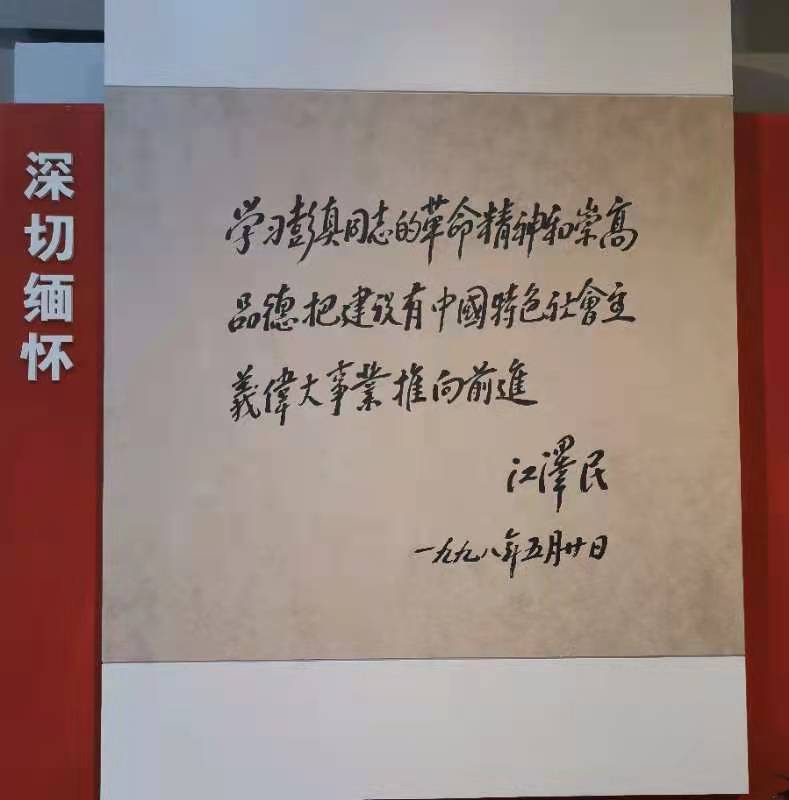 深切缅怀
学习彭真同志的革命精神和崇高
品德把建设有中國特色社會主
義偉大事業推向前進
江澤民
一九九八年五月廿日